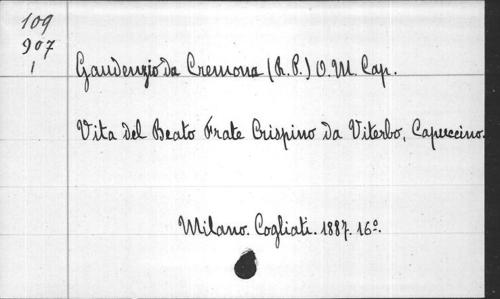 109
907
1
Gaudenzio da Cremona (R. P.) O. M. Cap.
Vita del Beato Frate Crispino da Viterbo, Capuccino.
Milano. Cogliati. 1887. 16º.